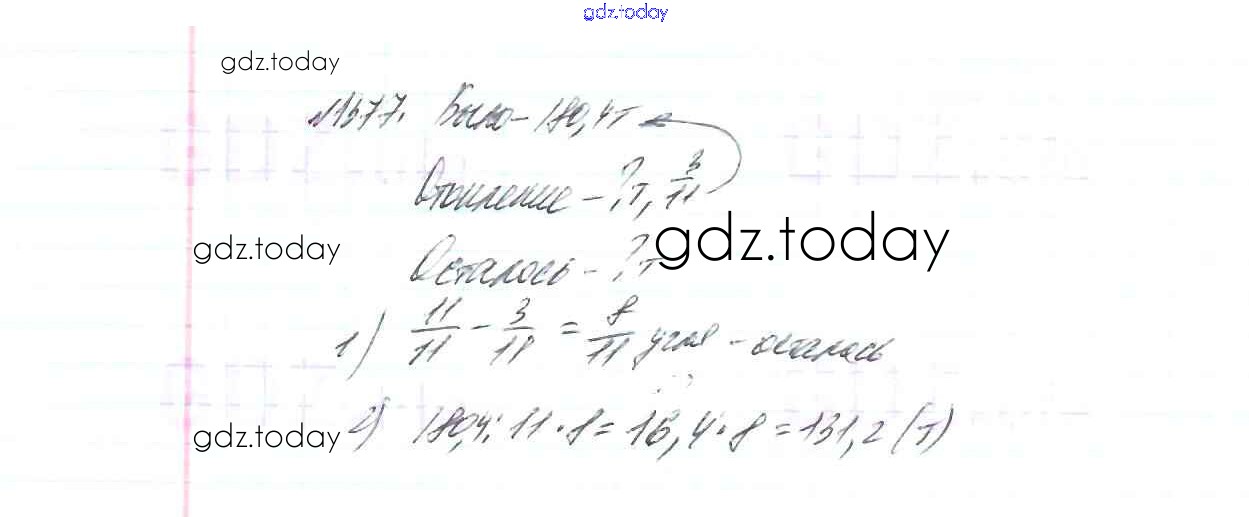 gdz.today
gdz.today
№1377. Было - 180,4т
Отопление - ?т, 3/11
gdz.today
gdz.today
Осталось - ?т
1) 11/11 - 3/11 = 8/11 угля - осталось
gdz.today
2) 180,4 : 11 · 8 = 16,4 · 8 = 131,2 (т)